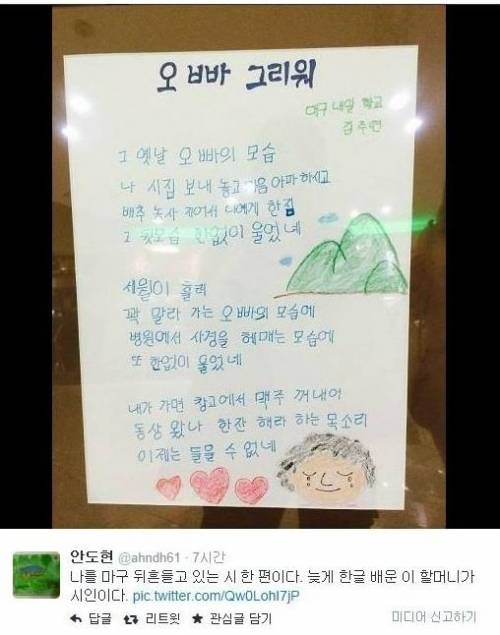 오빠바 그리워
대구 내일 학교
김주연
그 옛날 오빠의 모습
나 시집 보내 놓고 마음 아파 하시고
배추 농사 지어서 나에게 한짐
그 뒷모습 한없이 울었네
세월이 흘러
꽉 말라 가는 오빠의 모습에
병원에서 사경을 헤매는 모습에
또 한없이 울었네
내가 가면 창고에서 맥주 꺼내어
동상 왔나 한잔 해라 하는 목소리
이제는 들을 수 없네
안도현 @ahndh61 · 7시간
나를 마구 뒤흔들고 있는 시 한 편이다. 늦게 한글 배운 이 할머니가
시인이다. pic.twitter.com/Qw0LohI7jP
답글 리트윗 관심글 담기 미디어 신고하기